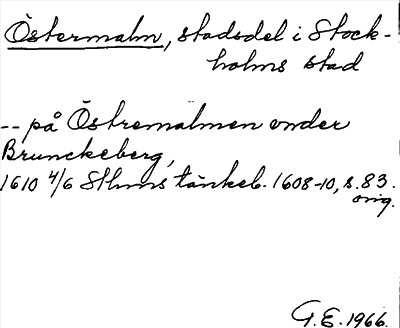 Östermalm, stadsdel i Stock-
holms stad
-- på Östremalmen vnder
Brunckeberg,
1610 4/6 Sthms tänkeb. 1608-10, s. 83.
orig.
G.E. 1966.